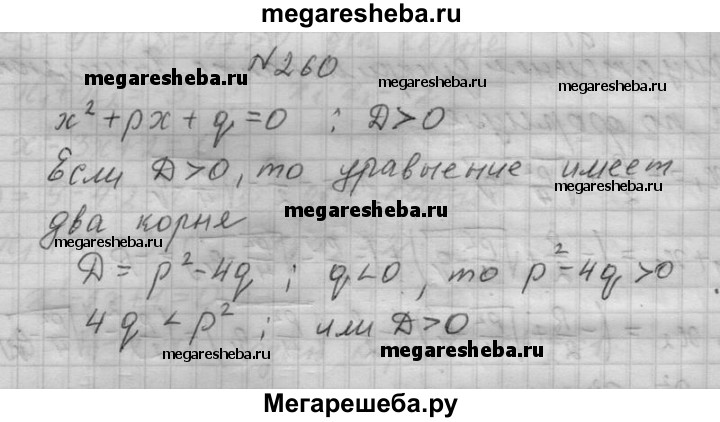 megaresheba.ru
№260
megaresheba.ru megaresheba.ru
x²+px+q=0 ; D>0
Если D>0, то уравнение имеет
megaresheba.ru
два корня megaresheba.ru
megaresheba.ru
D = p²-4q ; q<0, то p²-4q>0
4q < p² ; или D>0
megaresheba.ru megaresheba.ru
Мегарешеба.ру